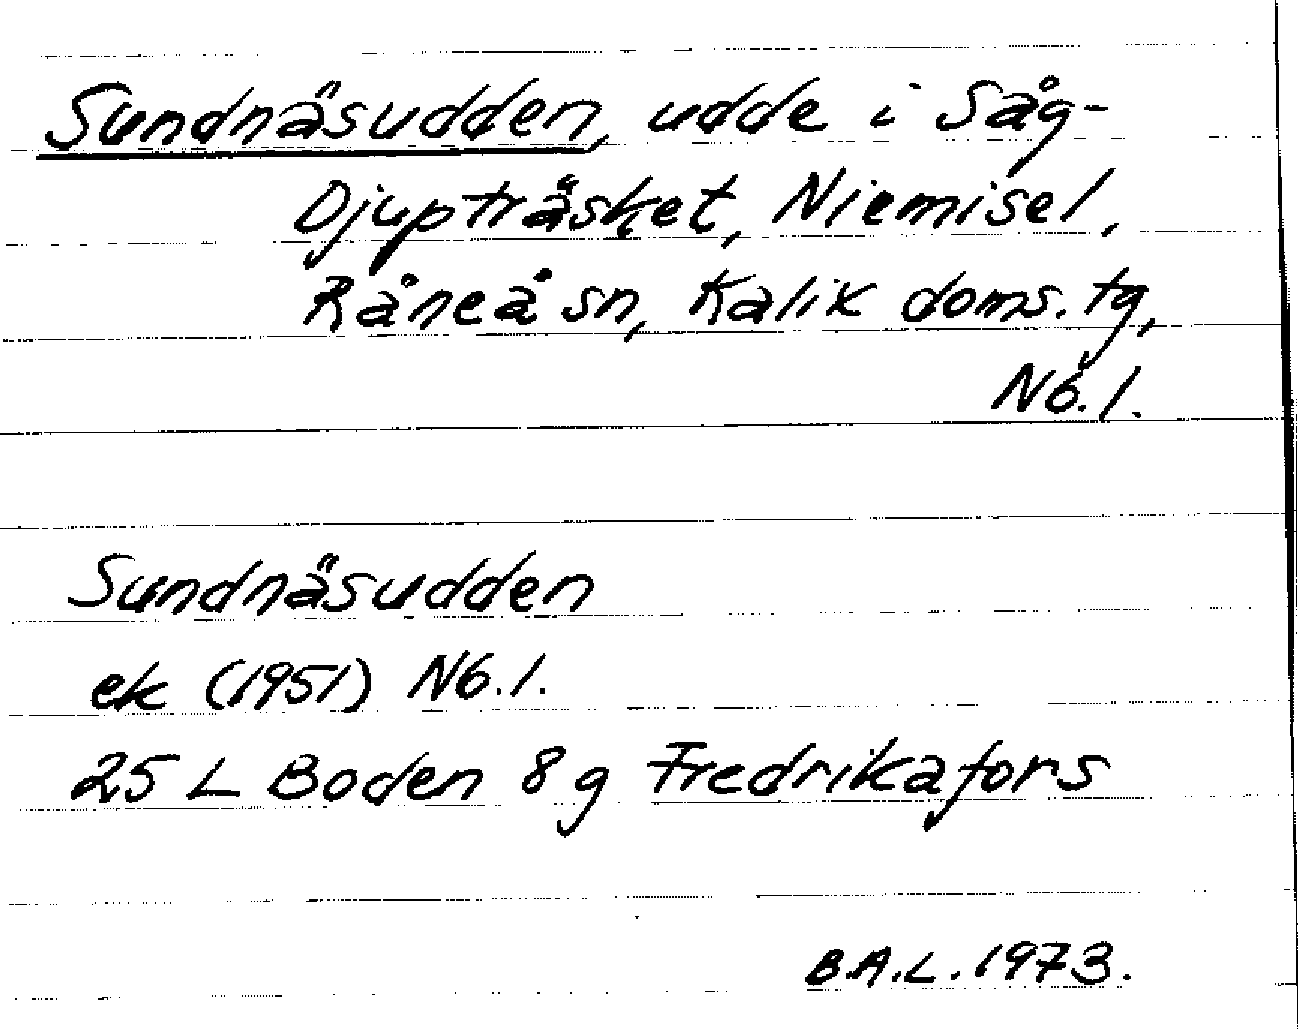 Sundnäsudden, udde i Såg-
Djupträsket, Niemisel,
Råneå sn, Kalix doms. tg,
Nb. l.
Sundnäsudden
ek (1951) Nb. l.
25 L Boden 8 g Fredrikafors
B.A.L. 1973.